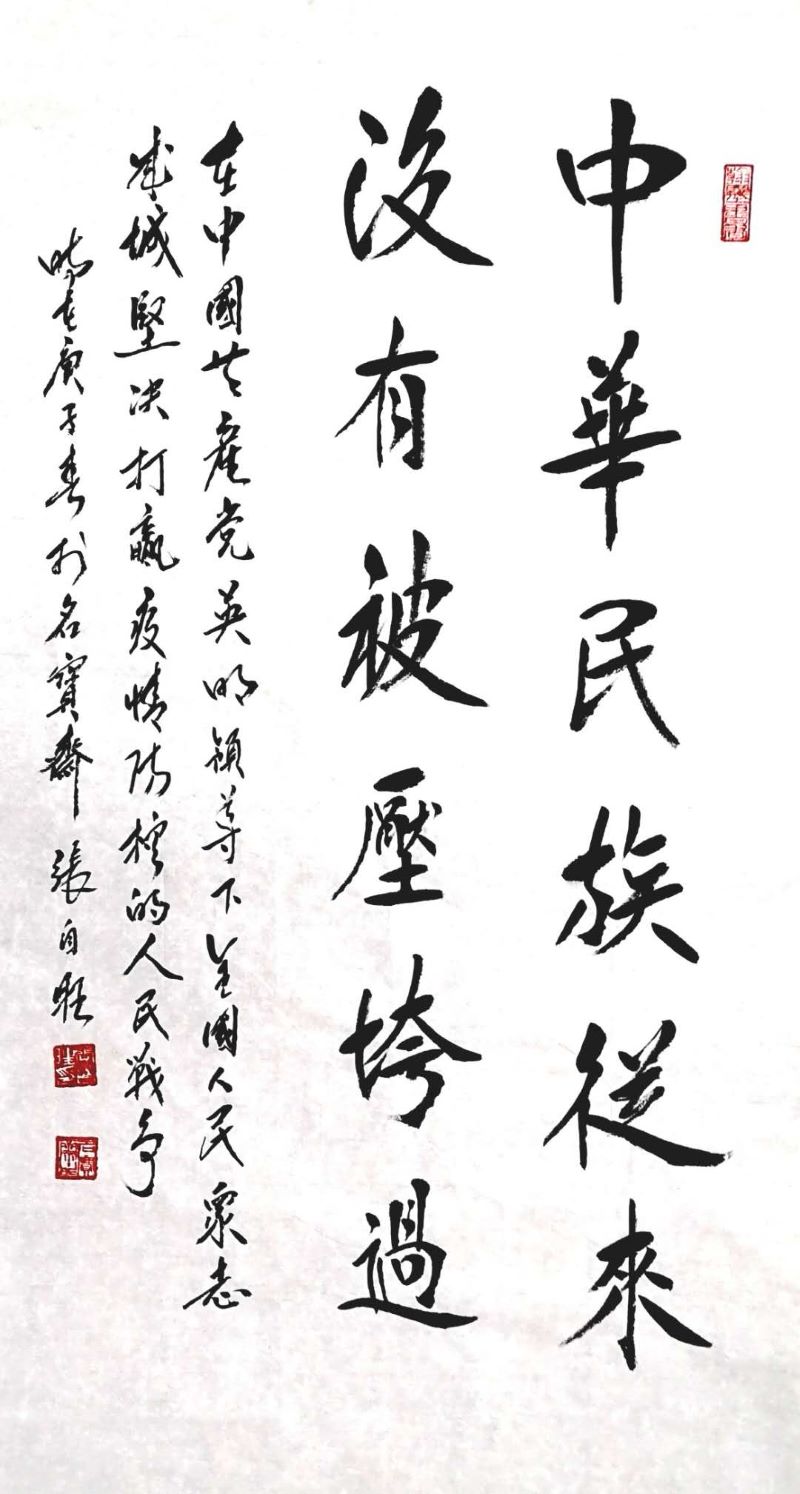 中華民族從來
沒有被壓垮過
在中國共產党英明領導下全國人民眾志
成城堅決打贏疫情防控的人民戰爭
時在庚子春於名寶齋 張自旺